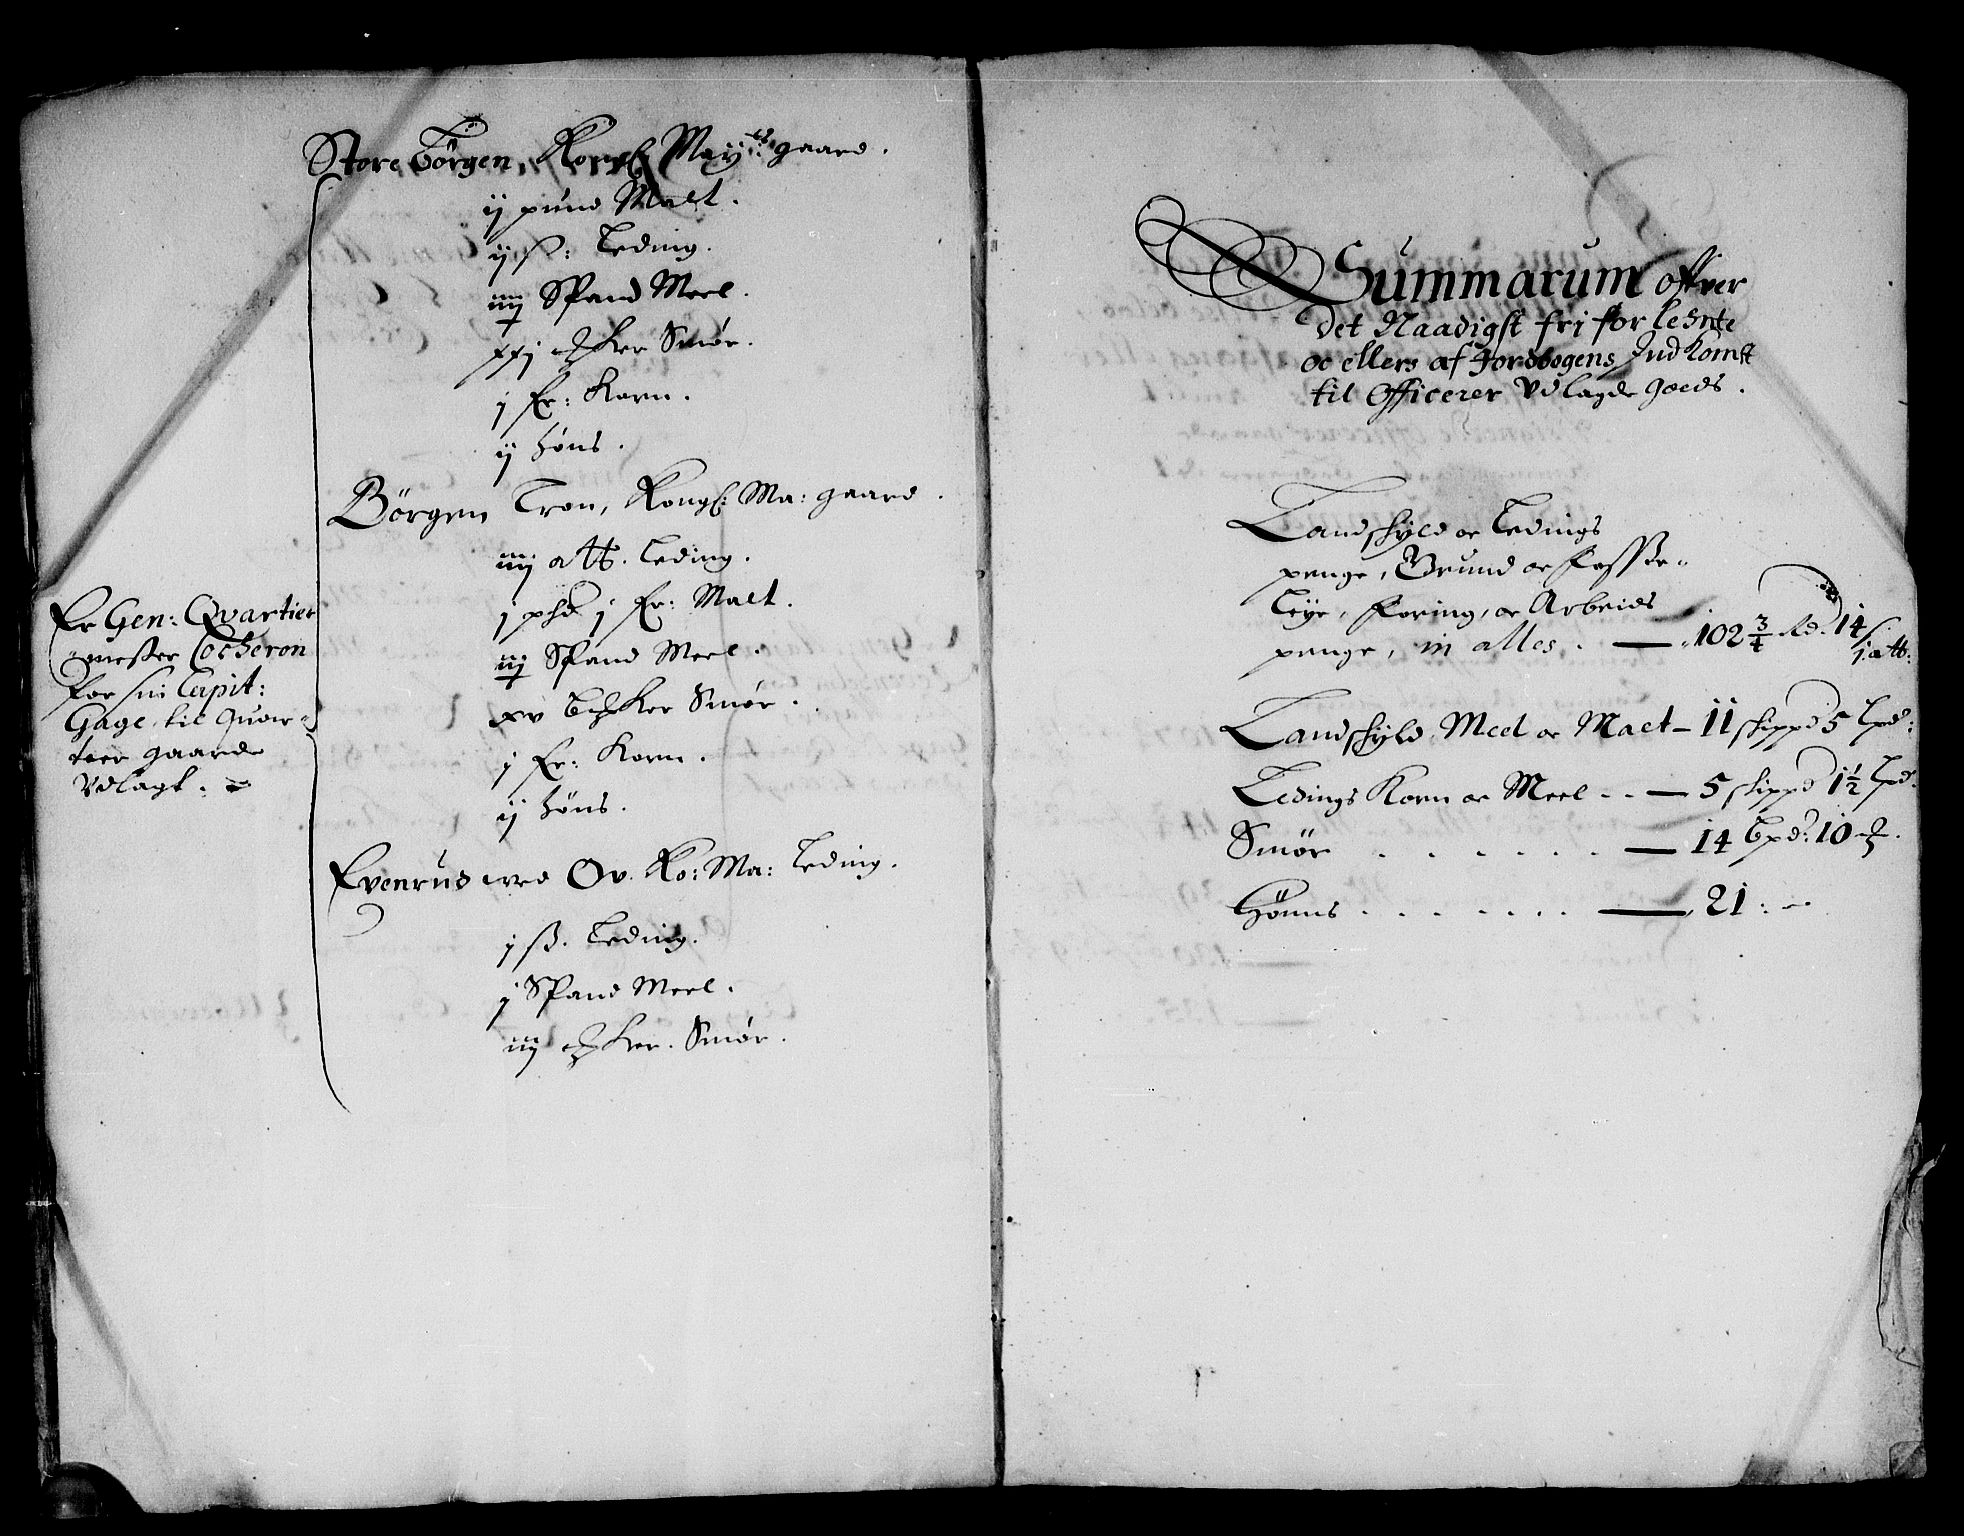 Store Børgen, Kongl: May:ts gaard.
ij pund Malt.
ij ß: Leding.
iiij Spand Meel.
xxj Mker Smør.
j Fr: Korn.
ij Høns.
Børgen Tron, Kongl: Ma: gaard.
iiij alb. Leding.
j phd j Fr: Malt.
iij Spand Meel.
xv Mker Smør.
j Fr: Korn.
ij Høns.
Evenrud wed Ov. Ko: Ma: Leding.
j ß. Leding.
j Spand Meel.
iiij Mker. Smør.
Er Gen: Qvartier
mester Cocheron
for sin Capit:
Gage til Quar-
teer gaarde
Vdlagt.
Summarum offver
det Naadigst fri forlente
oc ellers af Jordbogens Indkomst
til Officerer Vdlagde goeds.
Landskyld oc Ledings
penge, Grund oc Fosse-
Leye, Foring, oc Arbeids
penge, in alles. — 102 3/4 Rd. 14 ß:
1 alb:
Landskyld Meel oc Malt — 11 skippd 5 Lpd:
Ledings Korn oc Meel - - — 5 skippd 1 1/2 Lpd.
Smør . . . . . . — 14 Bpd: 10 M.
Hønns . . . . . . — 21: